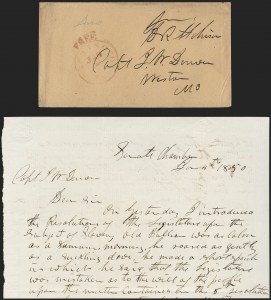 FREE
Capt J W Denver
Weston
Mo
Senate Chamber
1850
Capt J W Denver
Dear Sir
On yesterday I introduced
the Resolutions of the Legislature upon the
subject of Slavery, Old
as a summer morning, he roared as gently
as a suckling dove, he made a short speech
in which he says that the Legislature
was mistaken as to the will of the people
upon the matter contained in the 5 Resolution